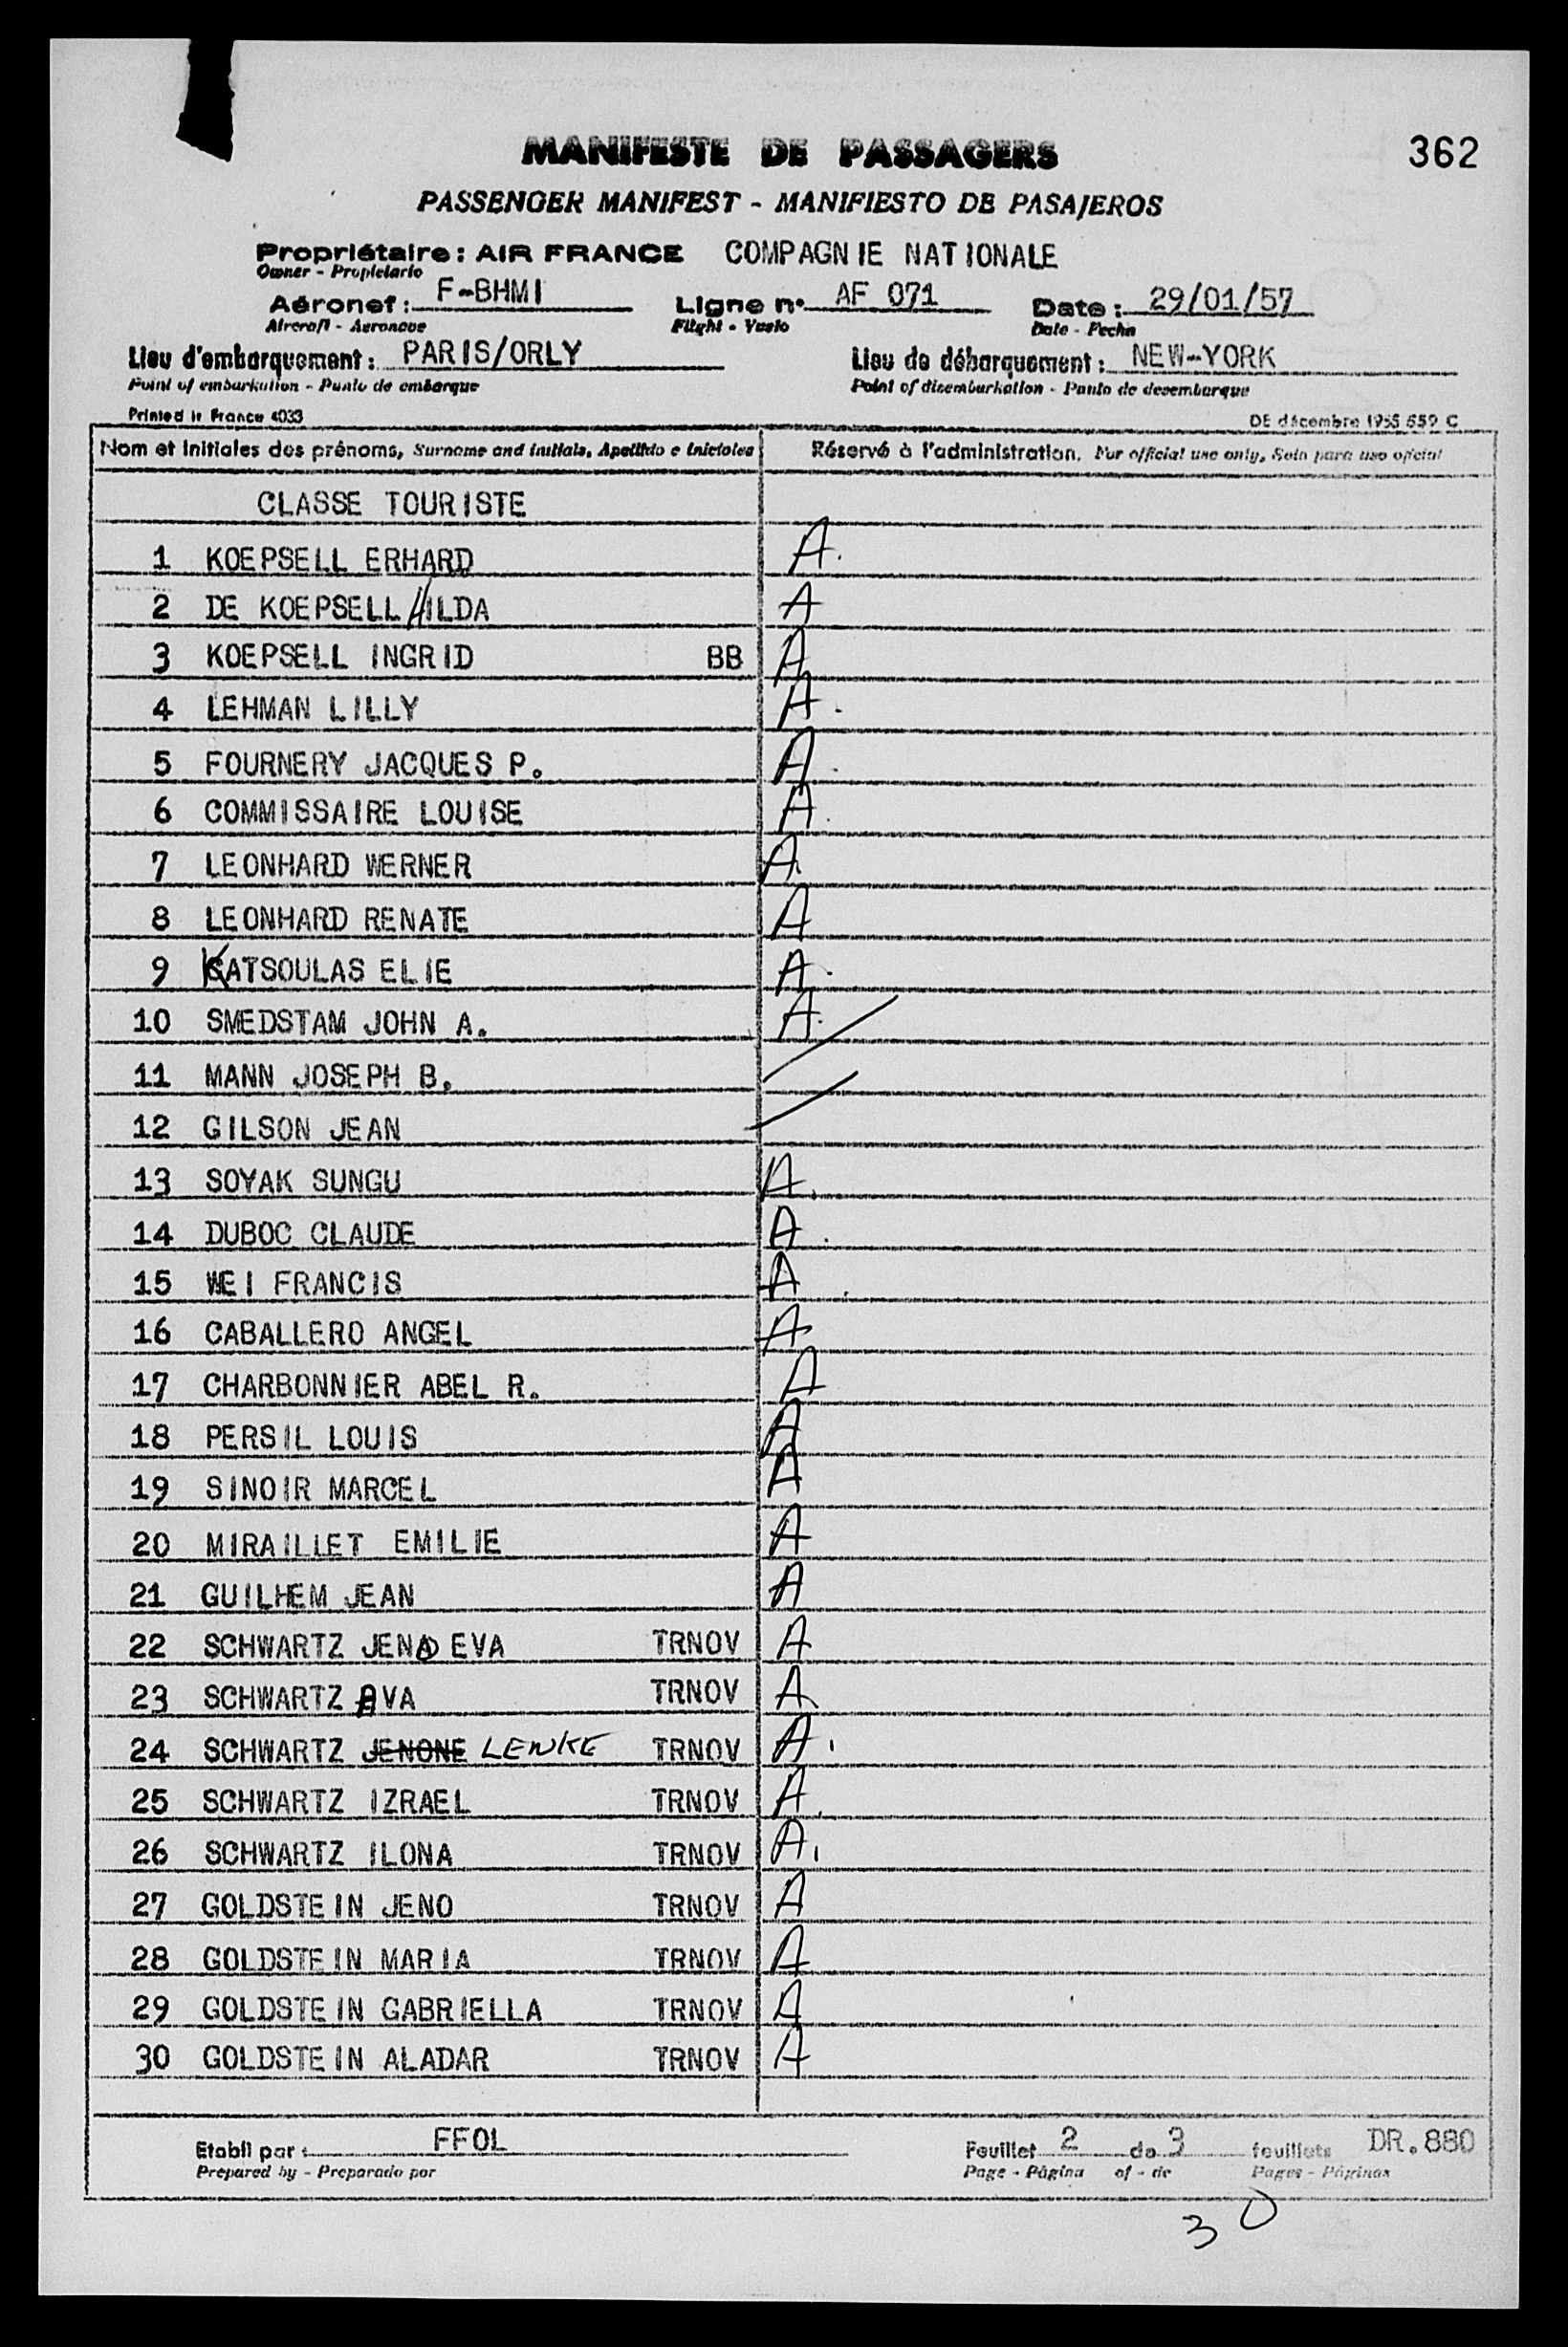 362
MANIFESTE DE PASSAGERS
PASSENGER MANIFEST - MANIFIESTO DE PASAJEROS
Propriétaire : AIR FRANCE COMPAGNIE NATIONALE
Owner - Propietario
Aéronef : F-BHMI Ligne n° AF 071 Date : 29/01/57
Aircraft - Aeronave Flight - Vuelo Date - Fecha
Lieu d'embarquement : PARIS/ORLY Lieu de débarquement : NEW-YORK
Point of embarkation - Punto de embarque Point of disembarkation - Punto de desembarque
Printed in France 4033 DE décembre 1955 559 C
Nom et initiales des prénoms, Surname and initials, Apellido e iniciales Réservé à l'administration, For official use only, Solo para uso oficial
CLASSE TOURISTE
1 KOEPSELL ERHARD A.
2 DE KOEPSELL HILDA A
3 KOEPSELL INGRID BB A
4 LEHMAN LILLY A.
5 FOURNERY JACQUES P. A.
6 COMMISSAIRE LOUISE A.
7 LEONHARD WERNER A
8 LEONHARD RENATE A
9 KATSOULAS ELIE A.
10 SMEDSTAM JOHN A. A.
11 MANN JOSEPH B. /
12 GILSON JEAN /
13 SOYAK SUNGU A.
14 DUBOC CLAUDE A.
15 WEI FRANCIS A.
16 CABALLERO ANGEL A
17 CHARBONNIER ABEL R. A
18 PERSIL LOUIS A
19 SINOIR MARCEL A
20 MIRAILLET EMILIE A
21 GUILHEM JEAN A
22 SCHWARTZ JENO EVA TRNOV A
23 SCHWARTZ EVA TRNOV A
24 SCHWARTZ JENONE LENKE TRNOV A.
25 SCHWARTZ IZRAEL TRNOV A.
26 SCHWARTZ ILONA TRNOV A.
27 GOLDSTEIN JENO TRNOV A
28 GOLDSTEIN MARIA TRNOV A
29 GOLDSTEIN GABRIELLA TRNOV A
30 GOLDSTEIN ALADAR TRNOV A
Etabli par : FFOL Feuillet 2 de 3 feuillets DR.880
Prepared by - Preparado por Page - Página of - de Pages - Páginas
30